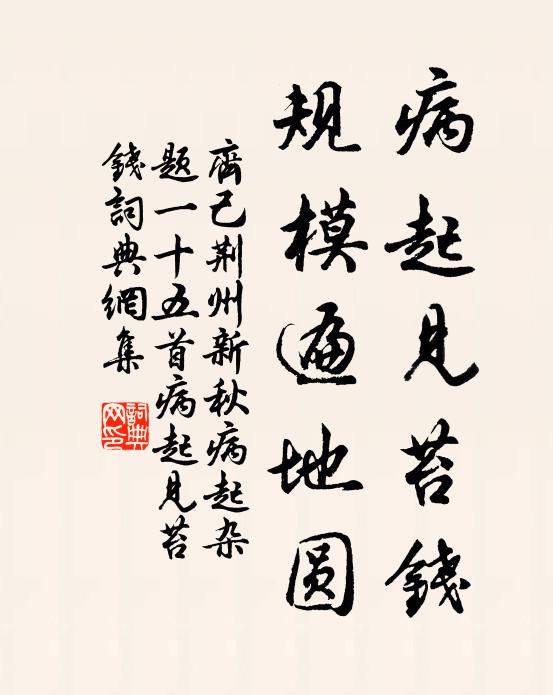 病起见苔錢
規模遍地圆
齊己荆州新秋病起杂
题一十五首病起見苔
錢詞典網集
詞典网印